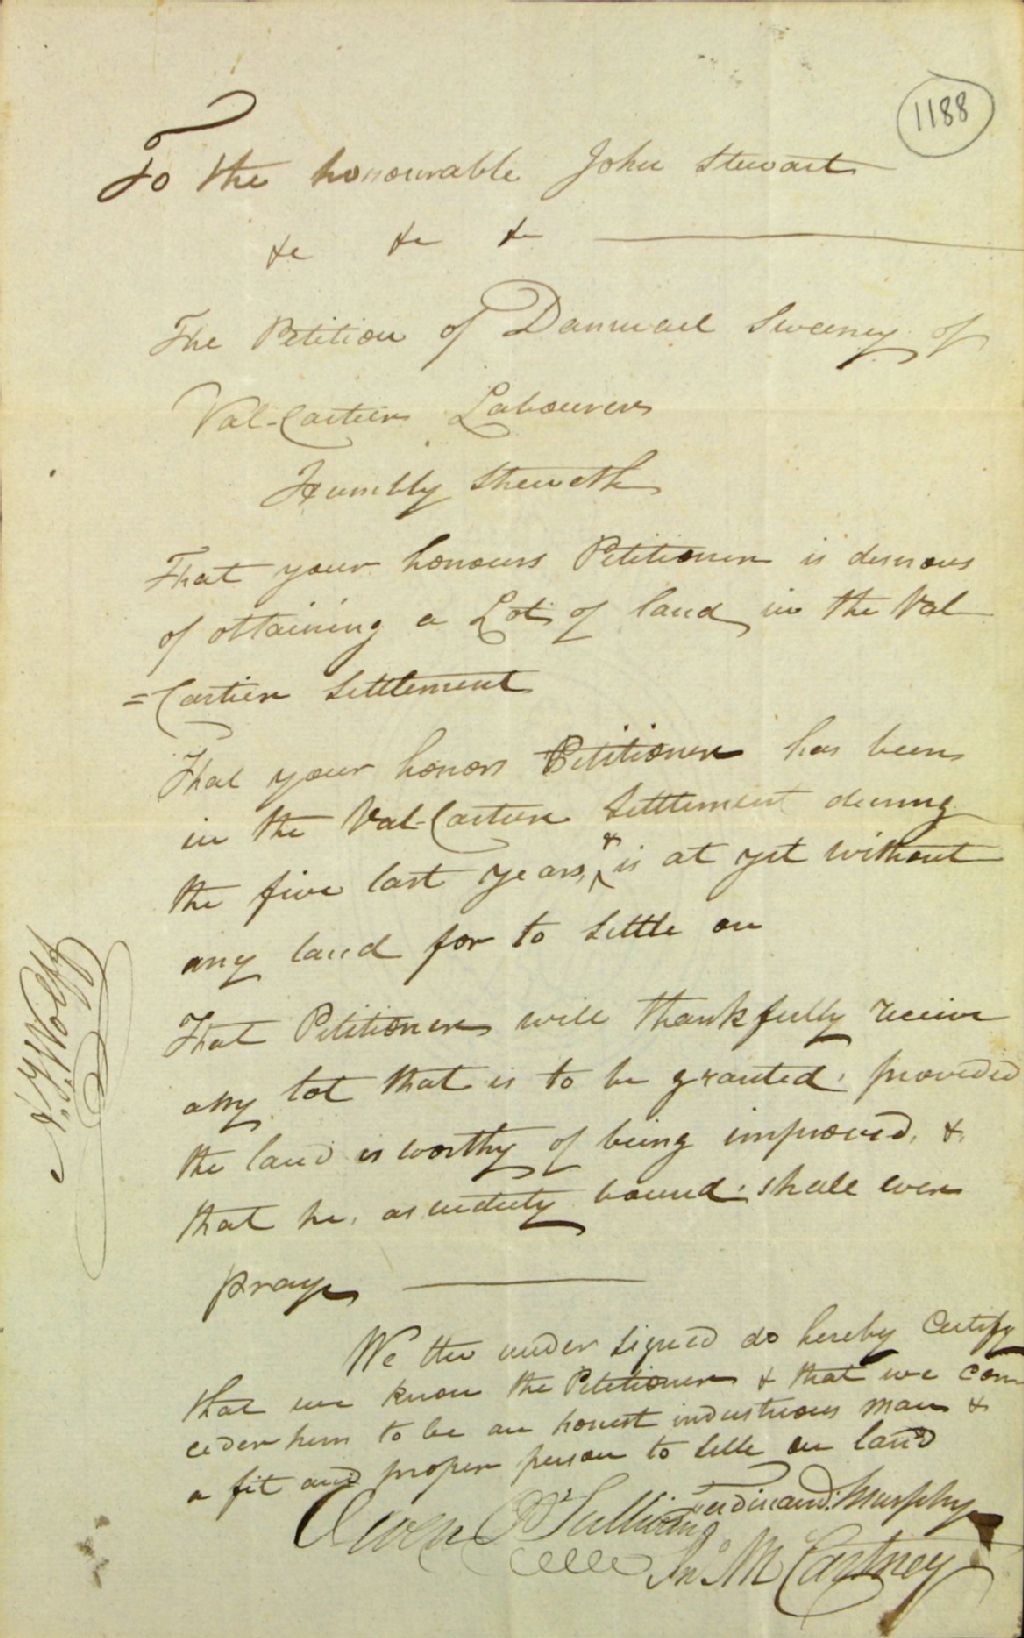 1188
To the honourable John Stewart
&c &c &c
The Petition of Danniael Sweeney of
Val-Cartier Labourer
Humbly Sheweth
That your honours Petitioner is desirous
of obtaining a Lot of land in the Val
=Cartier Settlement
That your honors Petitioner has been
in the Val-Cartier Settlement during
the five last years, & is at yet without
any land for to Settle on
That Petitioner will thankfully receive
any lot that is to be granted, provided
the land is worthy of being improved, &
that he, as induty bound, shall ever
pray
We the under signed do hereby Certify
that we know the Petitioner & that we con
ceder him to be an honest industrious man &
a fit and proper person to Selle on land
Ferdinand Murphy
Owen O'Sullivan
Jno McCartney
Wolff